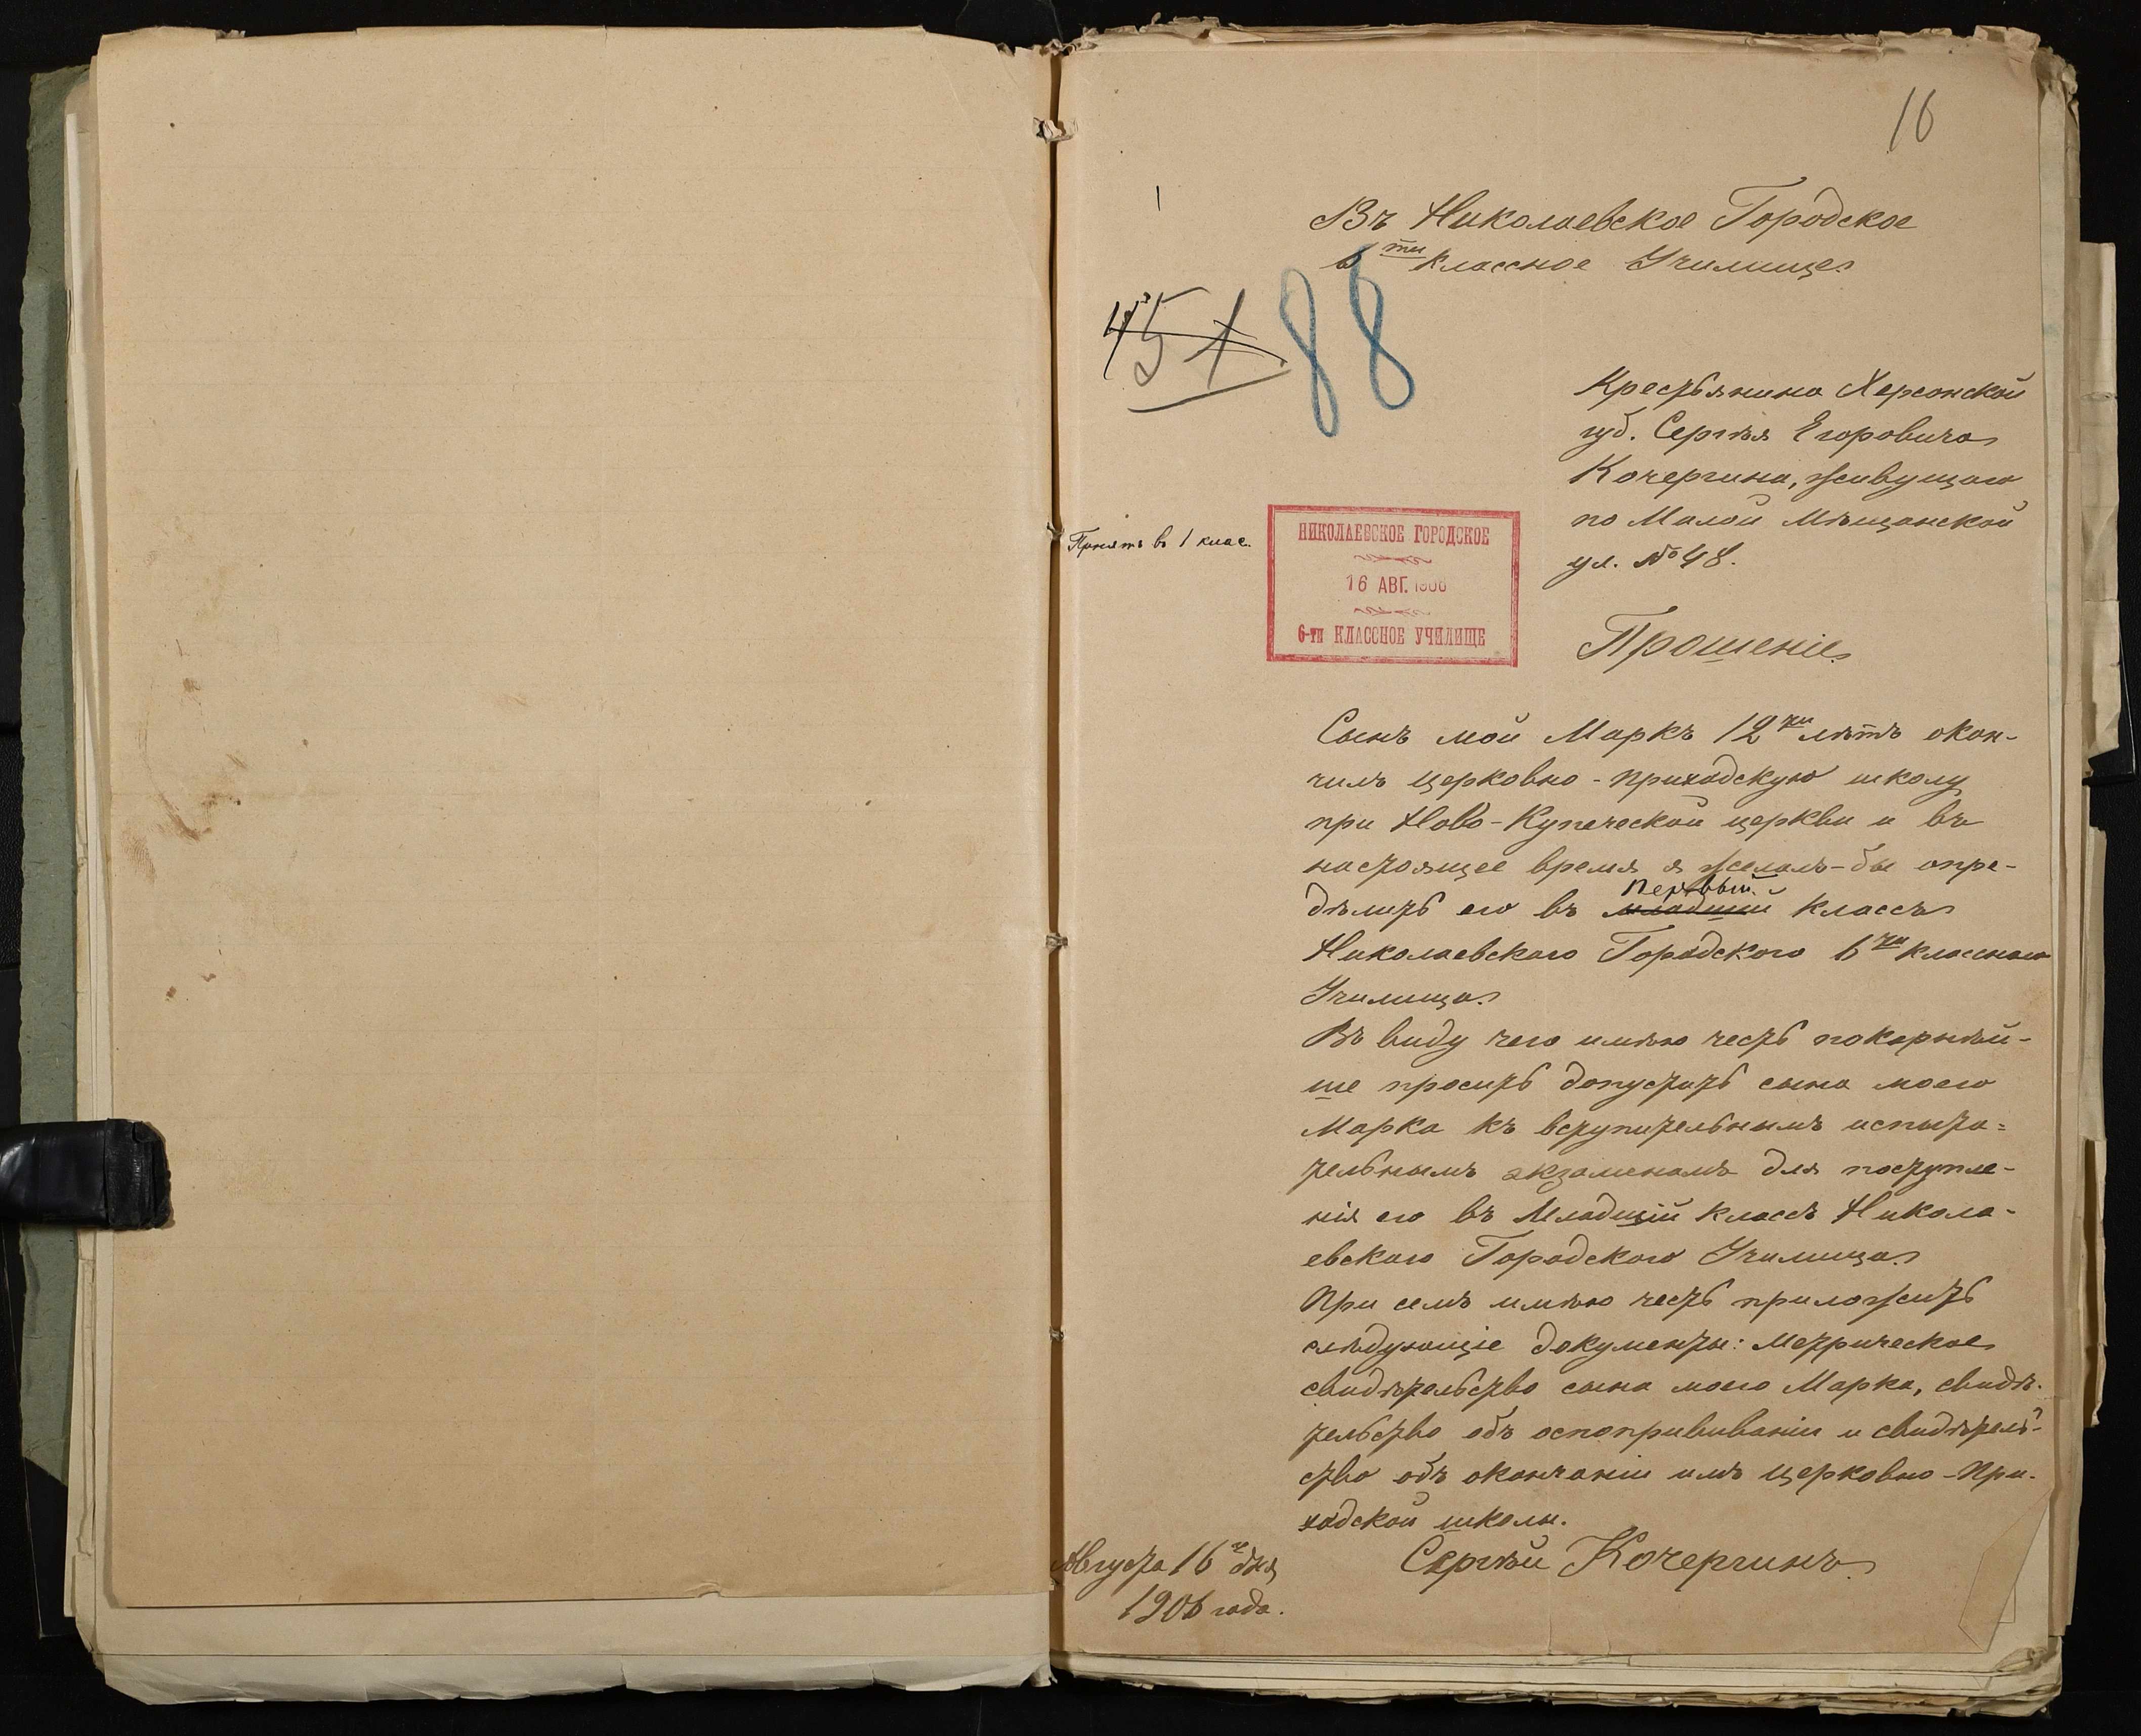 16
Въ Николаевское Городское
6ти классное Училище
88
Крестьянина Херсонской
губ. Сергѣя Егоровича
Кочергина, живущаго
по Малой Мѣщанской
ул. № 48.
Принятъ въ 1 клас.
НИКОЛАЕВСКОЕ ГОРОДСКОЕ
16 АВГ. 1906
6-ти КЛАССНОЕ УЧИЛИЩЕ
Прошеніе
Сынъ мой Маркъ 12ти лѣтъ окон-
чилъ церковно-приходскую школу
при Ново-Купеческой церкви и въ
настоящее время я желалъ-бы опре-
первый
дѣлить его въ младшій классъ
Николаевскаго Городского 6ти класснаго
Училища.
Въ виду чего имѣю честь покорнѣй-
ше просить допустить сына моего
Марка къ вступительнымъ испыта=
тельнымъ экзаменамъ для поступле-
нія его въ Младшій классъ Никола-
евскаго Городского Училища.
При семъ имѣю честь приложить
слѣдующіе документы: Метрическое
свидѣтельство сына моего Марка, свидѣ-
тельство объ оспопрививаніи и свидѣтель-
ство объ окончаніи имъ Церковно-При-
ходской школы.
Сергѣй Кочергинъ
Августа 16го дня
1906 года.